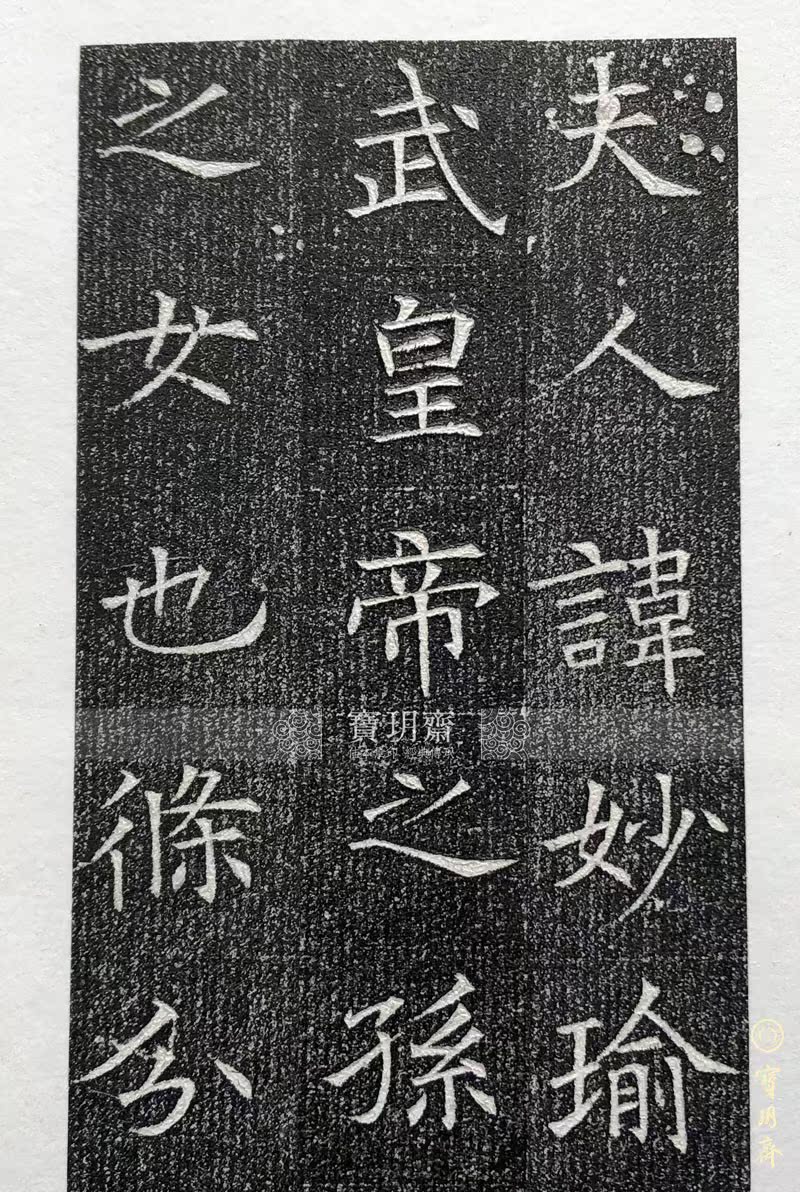 夫人諱妙瑜
武皇帝之孫
之女也條分
寶玥齋
寶玥齋